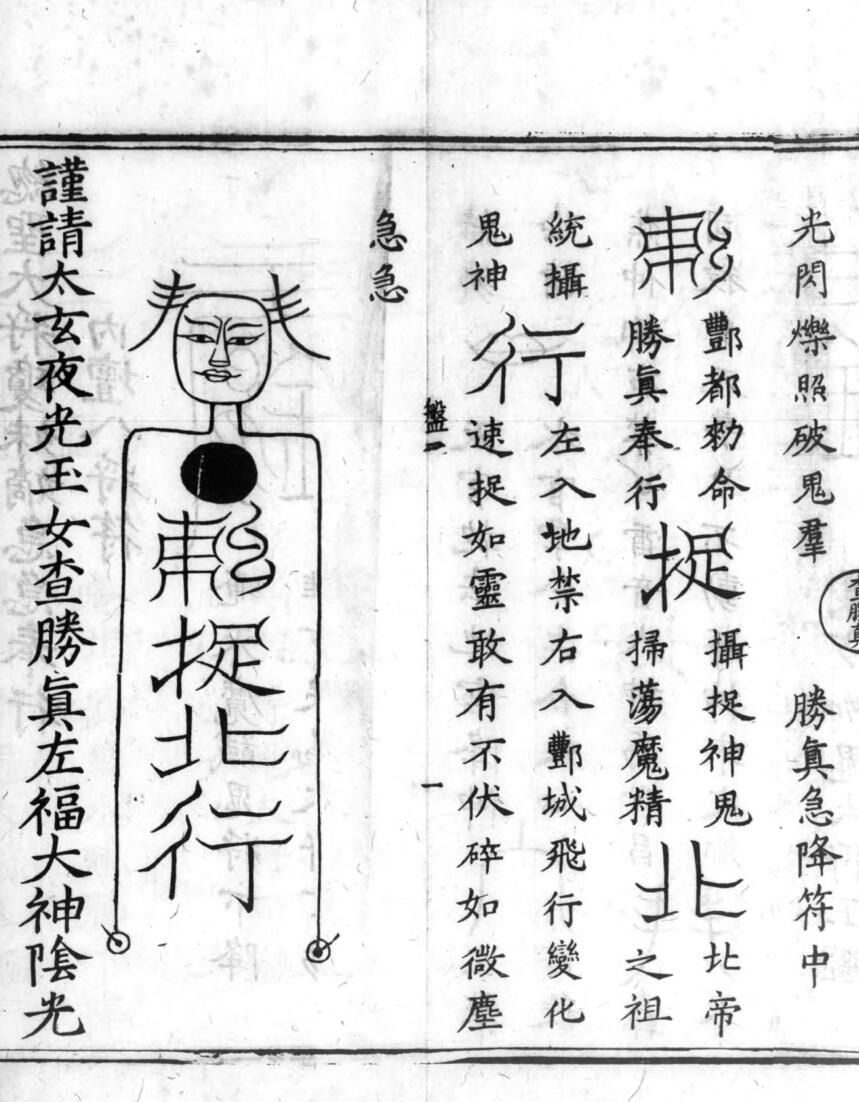 光閃爍照破鬼羣
勝眞急降符中
酆都勑命
勝眞奉行
捉
攝捉神鬼
掃蕩魔精
北
北帝
之祖
統攝
鬼神
行
左入地禁右入酆城飛行變化
速捉如靈敢有不伏碎如微塵
急急
一
捉
北
行
謹請太玄夜光玉女查勝眞左福大神陰光